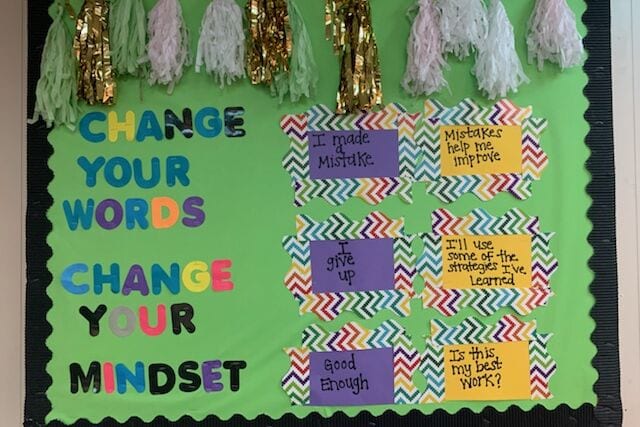 CHANGE
YOUR
WORDS
CHANGE
YOUR
MINDSET
I made
a
Mistake
Mistakes
help me
improve
I
give
up
I'll use
some of the
strategies I've
Learned
Good
Enough
Is this
my best
work?